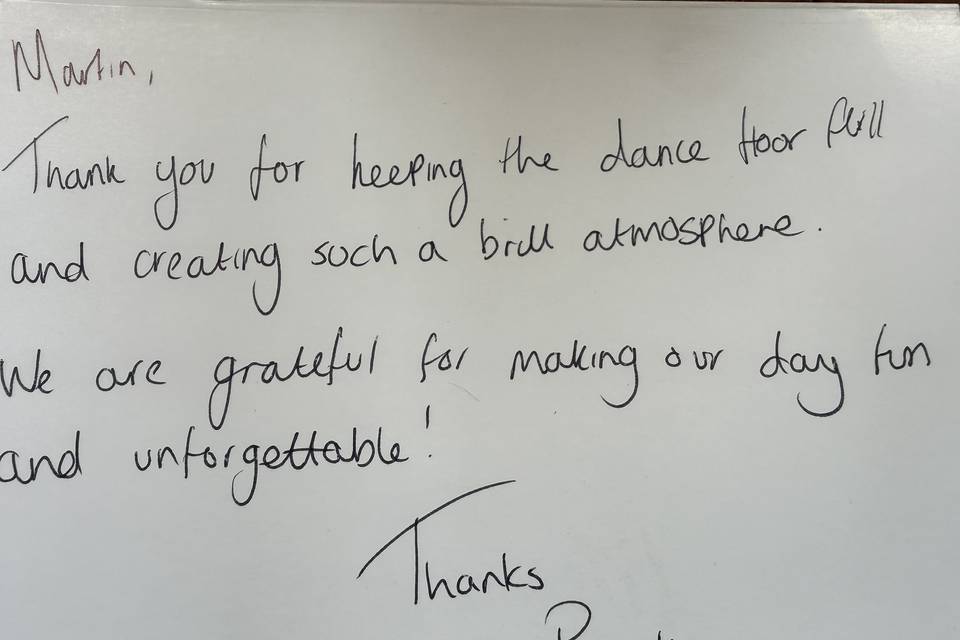 Martin,
Thank you for keeping the dance floor full
and creating such a brill atmosphere.
We are grateful for making our day fun
and unforgettable!
Thanks